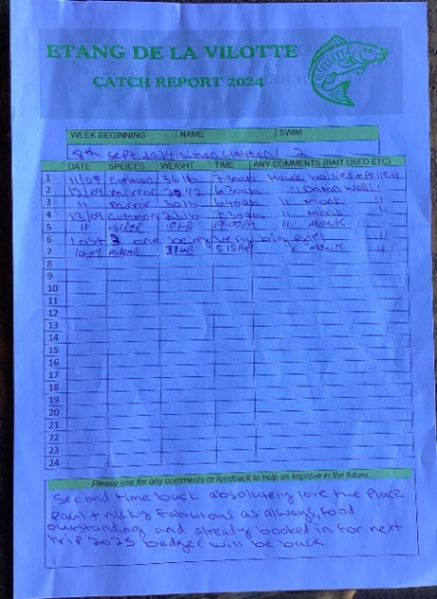 ETANG DE LA VILOTTE
CATCH REPORT 2024
WEEK BEGINNING NAME SWIM
8th Sept 2024 Simon Clayton 2
DATE SPEICES WEIGHT TIME ANY COMMENTS (BAIT USED ETC)
1 11/09 Common 36lb 7:30am House boilies + pellet
2 12/09 mirror 20 1/2 6:30am " Dam wall "
3 " mirror 30lb " monk "
4 13/09 common 23lb 7:30am " monk "
5 " mirror 19:00pm " monk "
6 Lost 3 one being very big
7 14/09 mirror 31lb " monk "
8
9
10
11
12
13
14
15
16
17
18
19
20
21
22
23
24
Please use for any comments or feedback to help us improve in the future.
Second time back absolutely love the place
Paul + nicky Fabulous as always, food
outstanding and already booked in for next
trip 2025 badger will be back